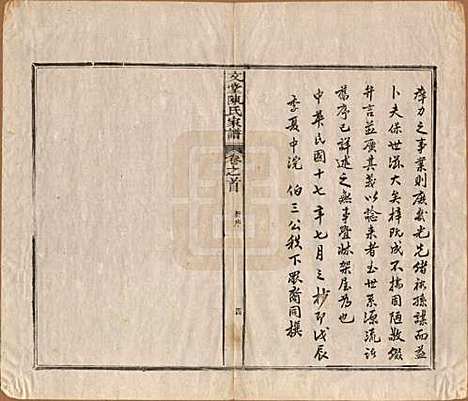 瘁力之事業則庶幾光先緒裕孫謀而益
卜夫保世滋大矣梓既成不揣固陋敬綴
弁言並廣其義以諗來者至世系源流詳
舊序已詳述之無事疊牀架屋為也
中華民國十七年七月之抄即戊辰
季夏中浣 伯三公秩下裔同撰
文堂陳氏家譜
卷之首
新序
四